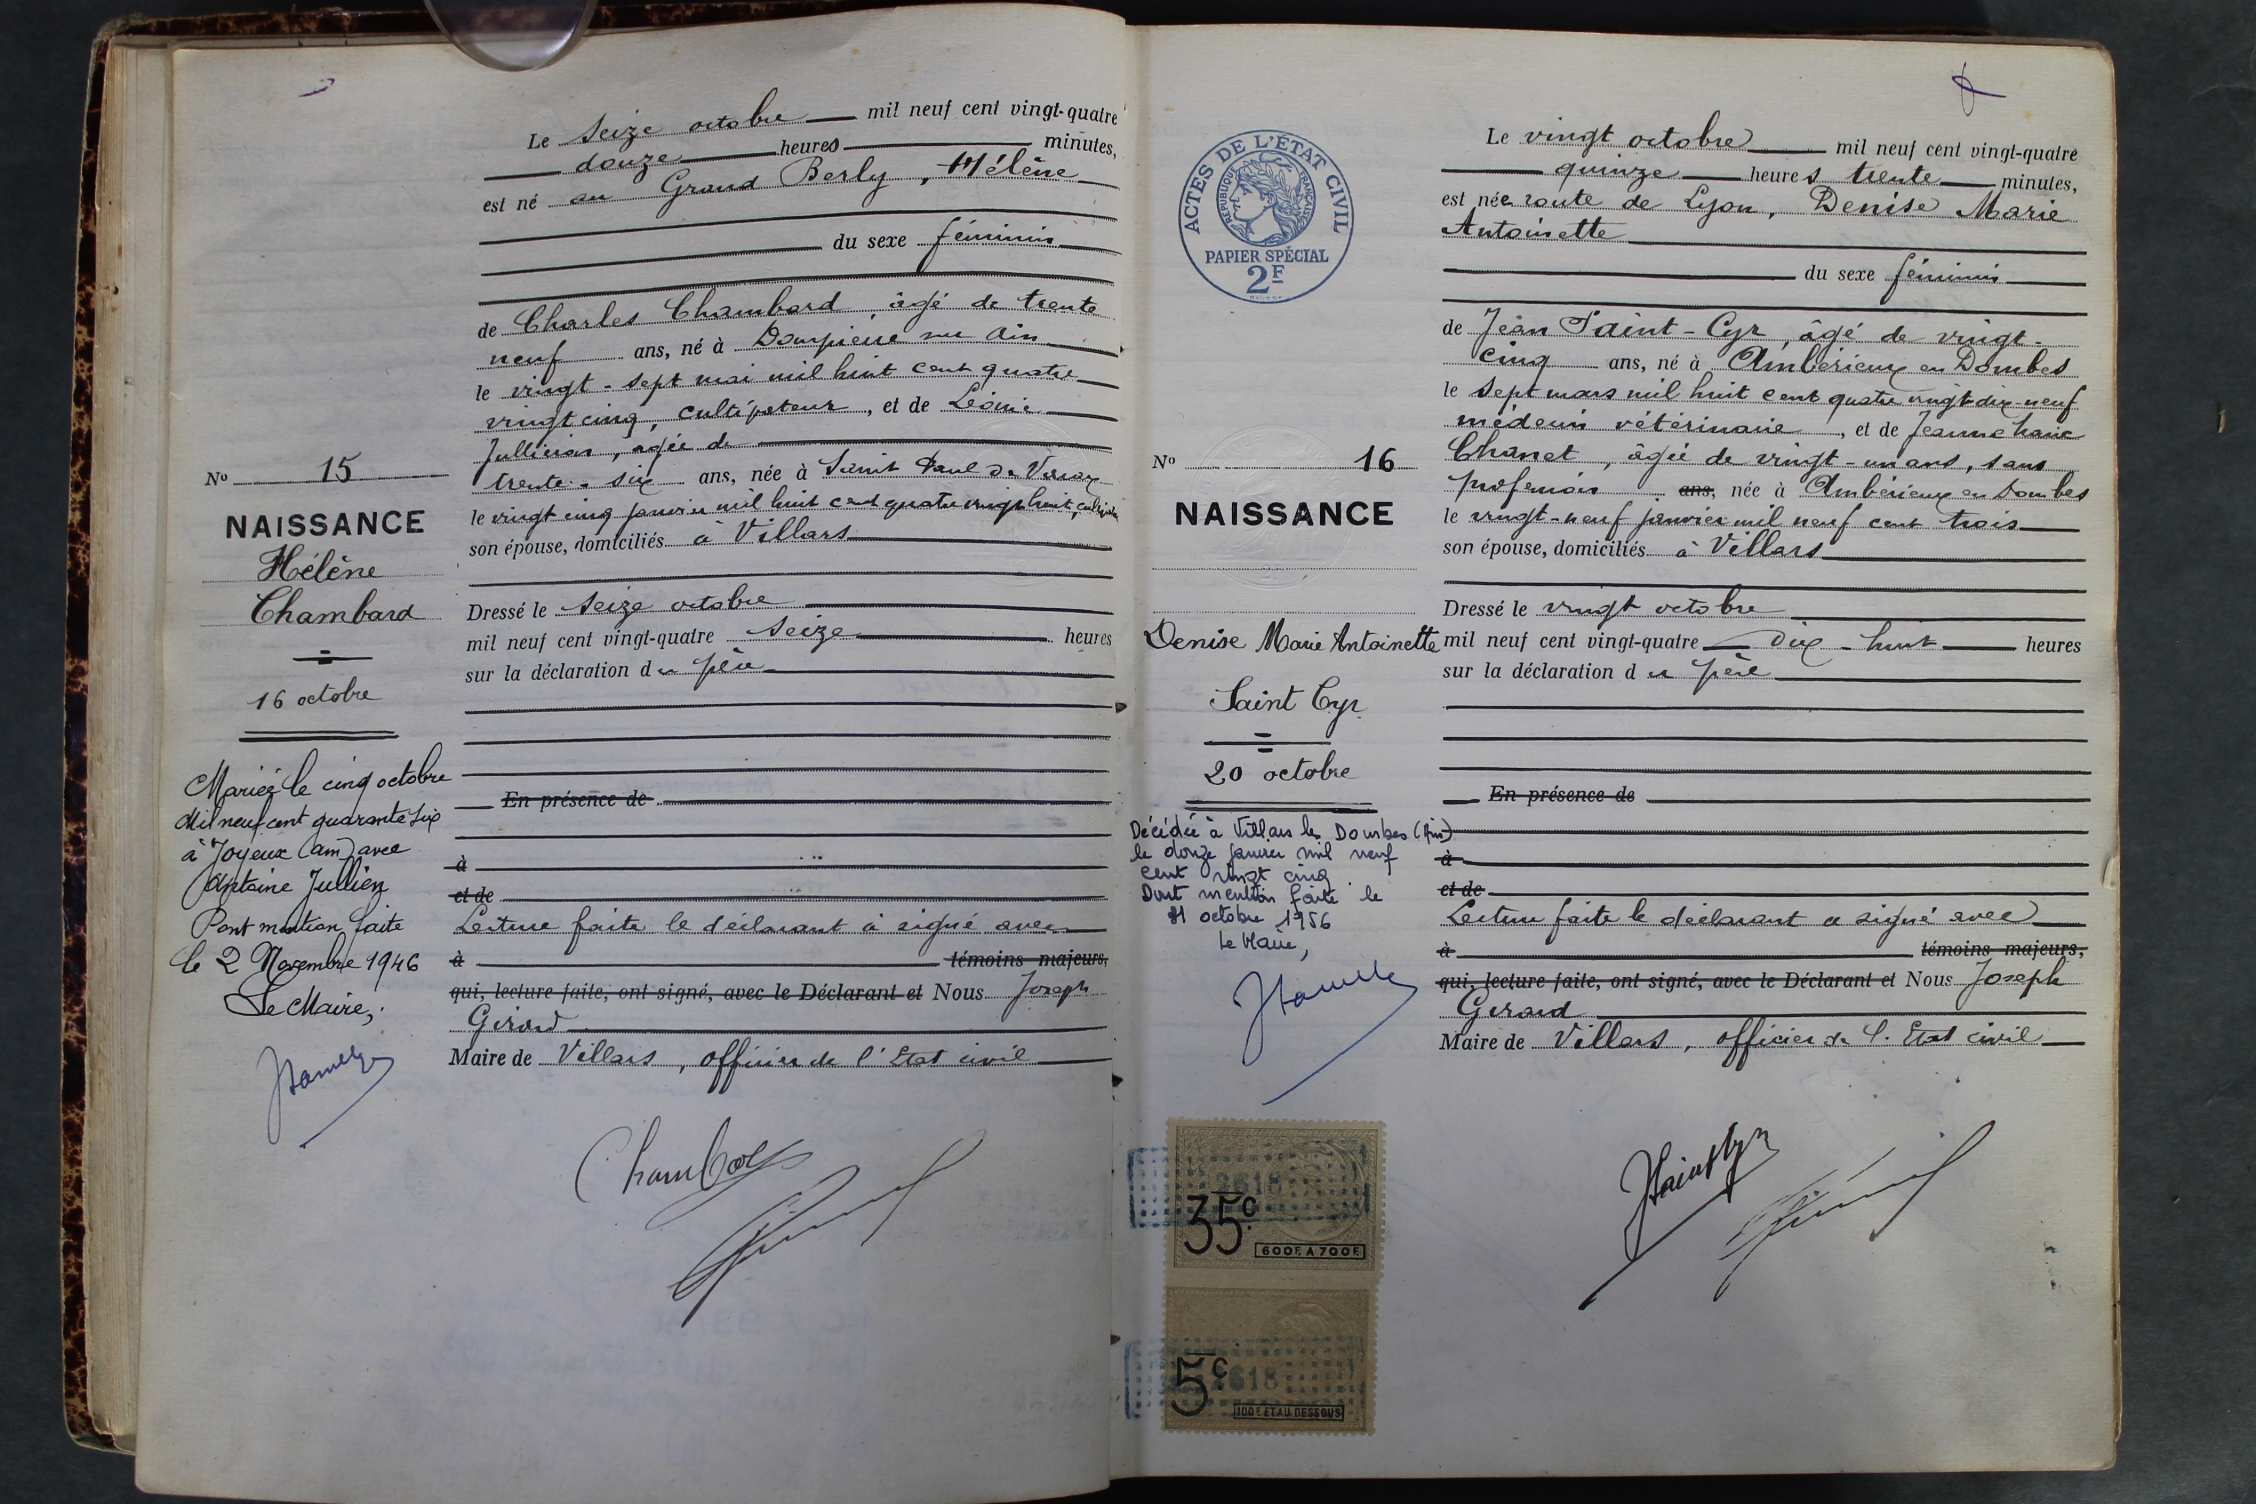 Le seize octobre mil neuf cent vingt-quatre
douze heures minutes,
est né au Grand Berly, Hélène
du sexe féminin
de Charles Chambard âgé de trente
neuf ans, né à Dompierre sur Ain
le vingt-sept mai mil huit cent quatre
vingt cinq, cultivateur, et de Léonie
Jullieron, âgée de
trente-six ans, née à Saint Paul de Varax
le vingt cinq janvier mil huit cent quatre vingt huit,
son épouse, domiciliés à Villars
Dressé le seize octobre
mil neuf cent vingt-quatre seize heures
sur la déclaration du père
En présence de
à
et de
Lecture faite le déclarant à signé avec
à témoins majeurs,
qui, lecture faite, ont signé, avec le Déclarant et Nous Joseph
Girard
Maire de Villars, officier de l'Etat civil
Chambard
No 15
NAISSANCE
Hélène
Chambard
16 octobre
Mariée le cinq octobre
Mil neuf cent quarante six
à Joyeux (ain) avec
Antoine Jullien
Dont mention faite
le 2 Novembre 1946
Le Maire,
ACTES DE L'ÉTAT CIVIL
RÉPUBLIQUE FRANÇAISE
PAPIER SPÉCIAL
2F
No 16
NAISSANCE
Denise Marie Antoinette
Saint Cyr
20 octobre
Décédée à Villars les Dombes (Ain)
le douze janvier mil neuf
cent vingt cinq
Dont mention faite le
31 octobre 1956
Le Maire,
2618
35c
600F. A 700F.
2618
5c
100F. ET AU DESSOUS
Le vingt octobre mil neuf cent vingt-quatre
quinze heures trente minutes,
est née route de Lyon, Denise Marie
Antoinette
du sexe féminin
de Jean Saint-Cyr, âgé de vingt-
cinq ans, né à Ambérieux en Dombes
le sept mars mil huit cent quatre vingt-dix-neuf
médecin vétérinaire, et de Jeanne Marie
Chanet, âgée de vingt-un ans, sans
profession ans, née à Ambérieux en Dombes
le vingt-neuf janvier mil neuf cent trois
son épouse, domiciliés à Villars
Dressé le vingt octobre
mil neuf cent vingt-quatre dix-huit heures
sur la déclaration du père
En présence de
à
et de
Lecture faite le déclarant a signé avec
à témoins majeurs,
qui, lecture faite, ont signé, avec le Déclarant et Nous Joseph
Girard
Maire de Villars, officier de l'Etat civil
JSaintCyr